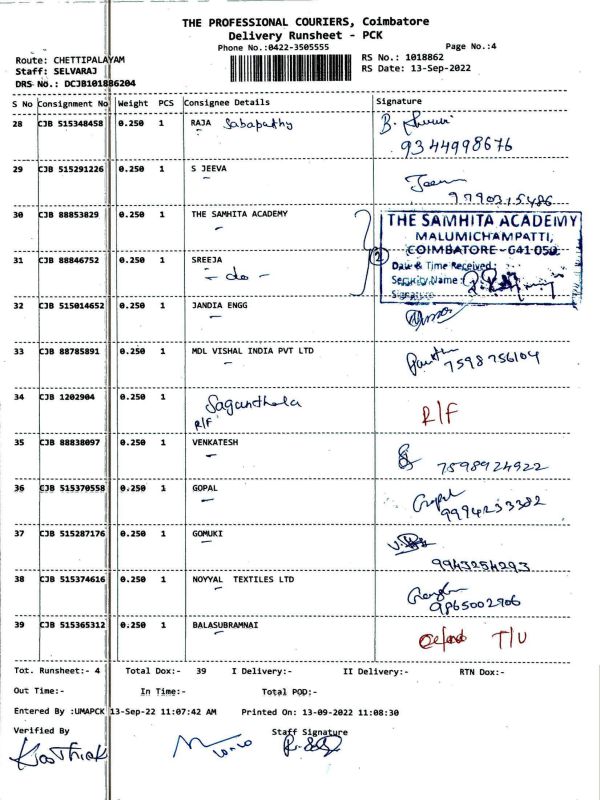 THE PROFESSIONAL COURIERS, Coimbatore
Delivery Runsheet - PCK
Phone No.:0422-3505555 Page No.:4
Route: CHETTIPALAYAM RS No.: 1018862
Staff: SELVARAJ RS Date: 13-Sep-2022
DRS No.: DCJB101886204
S No Consignment No Weight PCS Consignee Details Signature
28 CJB 515348458 0.250 1 RAJA Sabapathy
9344998676
29 CJB 515291226 0.250 1 S JEEVA
30 CJB 88853829 0.250 1 THE SAMHITA ACADEMY
THE SAMHITA ACADEMY
MALUMICHAMPATTI,
COIMBATORE - 641 050.
31 CJB 88846752 0.250 1 SREEJA
- do - 2
Date & Time Received:
Security Name:
Signature
32 CJB 515014652 0.250 1 JANDIA ENGG
33 CJB 88785891 0.250 1 MDL VISHAL INDIA PVT LTD
7598756104
34 CJB 1202904 0.250 1
R/F R/F
35 CJB 88838097 0.250 1 VENKATESH
7598924922
36 CJB 515370558 0.250 1 GOPAL Gopal
9994233382
37 CJB 515287176 0.250 1 GOMUKI
9943254293
38 CJB 515374616 0.250 1 NOYYAL TEXTILES LTD
9865002906
39 CJB 515365312 0.250 1 BALASUBRAMNAI T/U
Tot. Runsheet:- 4 Total Dox:- 39 I Delivery:- II Delivery:- RTN Dox:-
Out Time:- In Time:- Total POD:-
Entered By :UMAPCK 13-Sep-22 11:07:42 AM Printed On: 13-09-2022 11:08:30
Verified By Staff Signature